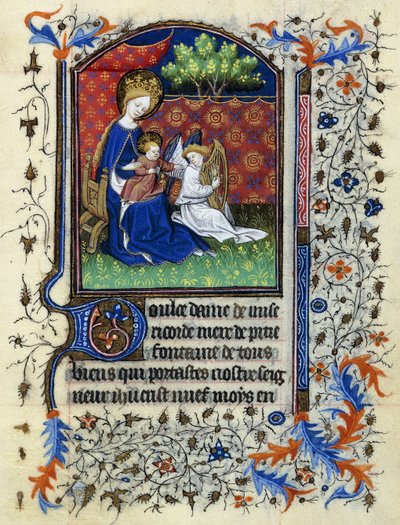 Doulce dame de mise
ricorde mere de pitie
fontaine de tous
biens qui portastes nostre seig
neur ihucrist nuef moys en